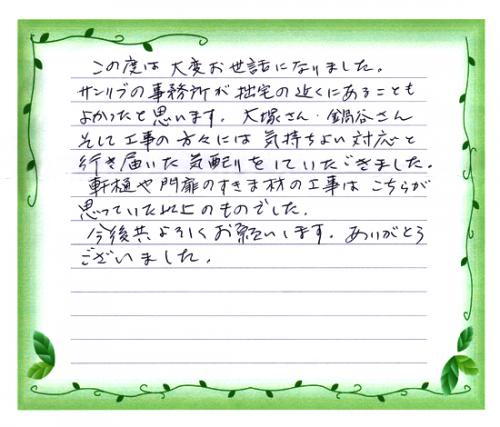 この度は大変お世話になりました。
サンリブの事務所が拙宅の近くにあることも
よかったと思います。大塚さん・鍋谷さん
そして工事の方々には気持ちよい対応と
行き届いた気配りをしていただきました。
軒樋や門扉のすきま材の工事はこちらが
思っていた以上のものでした。
今後共よろしくお願いします。ありがとう
ございました。